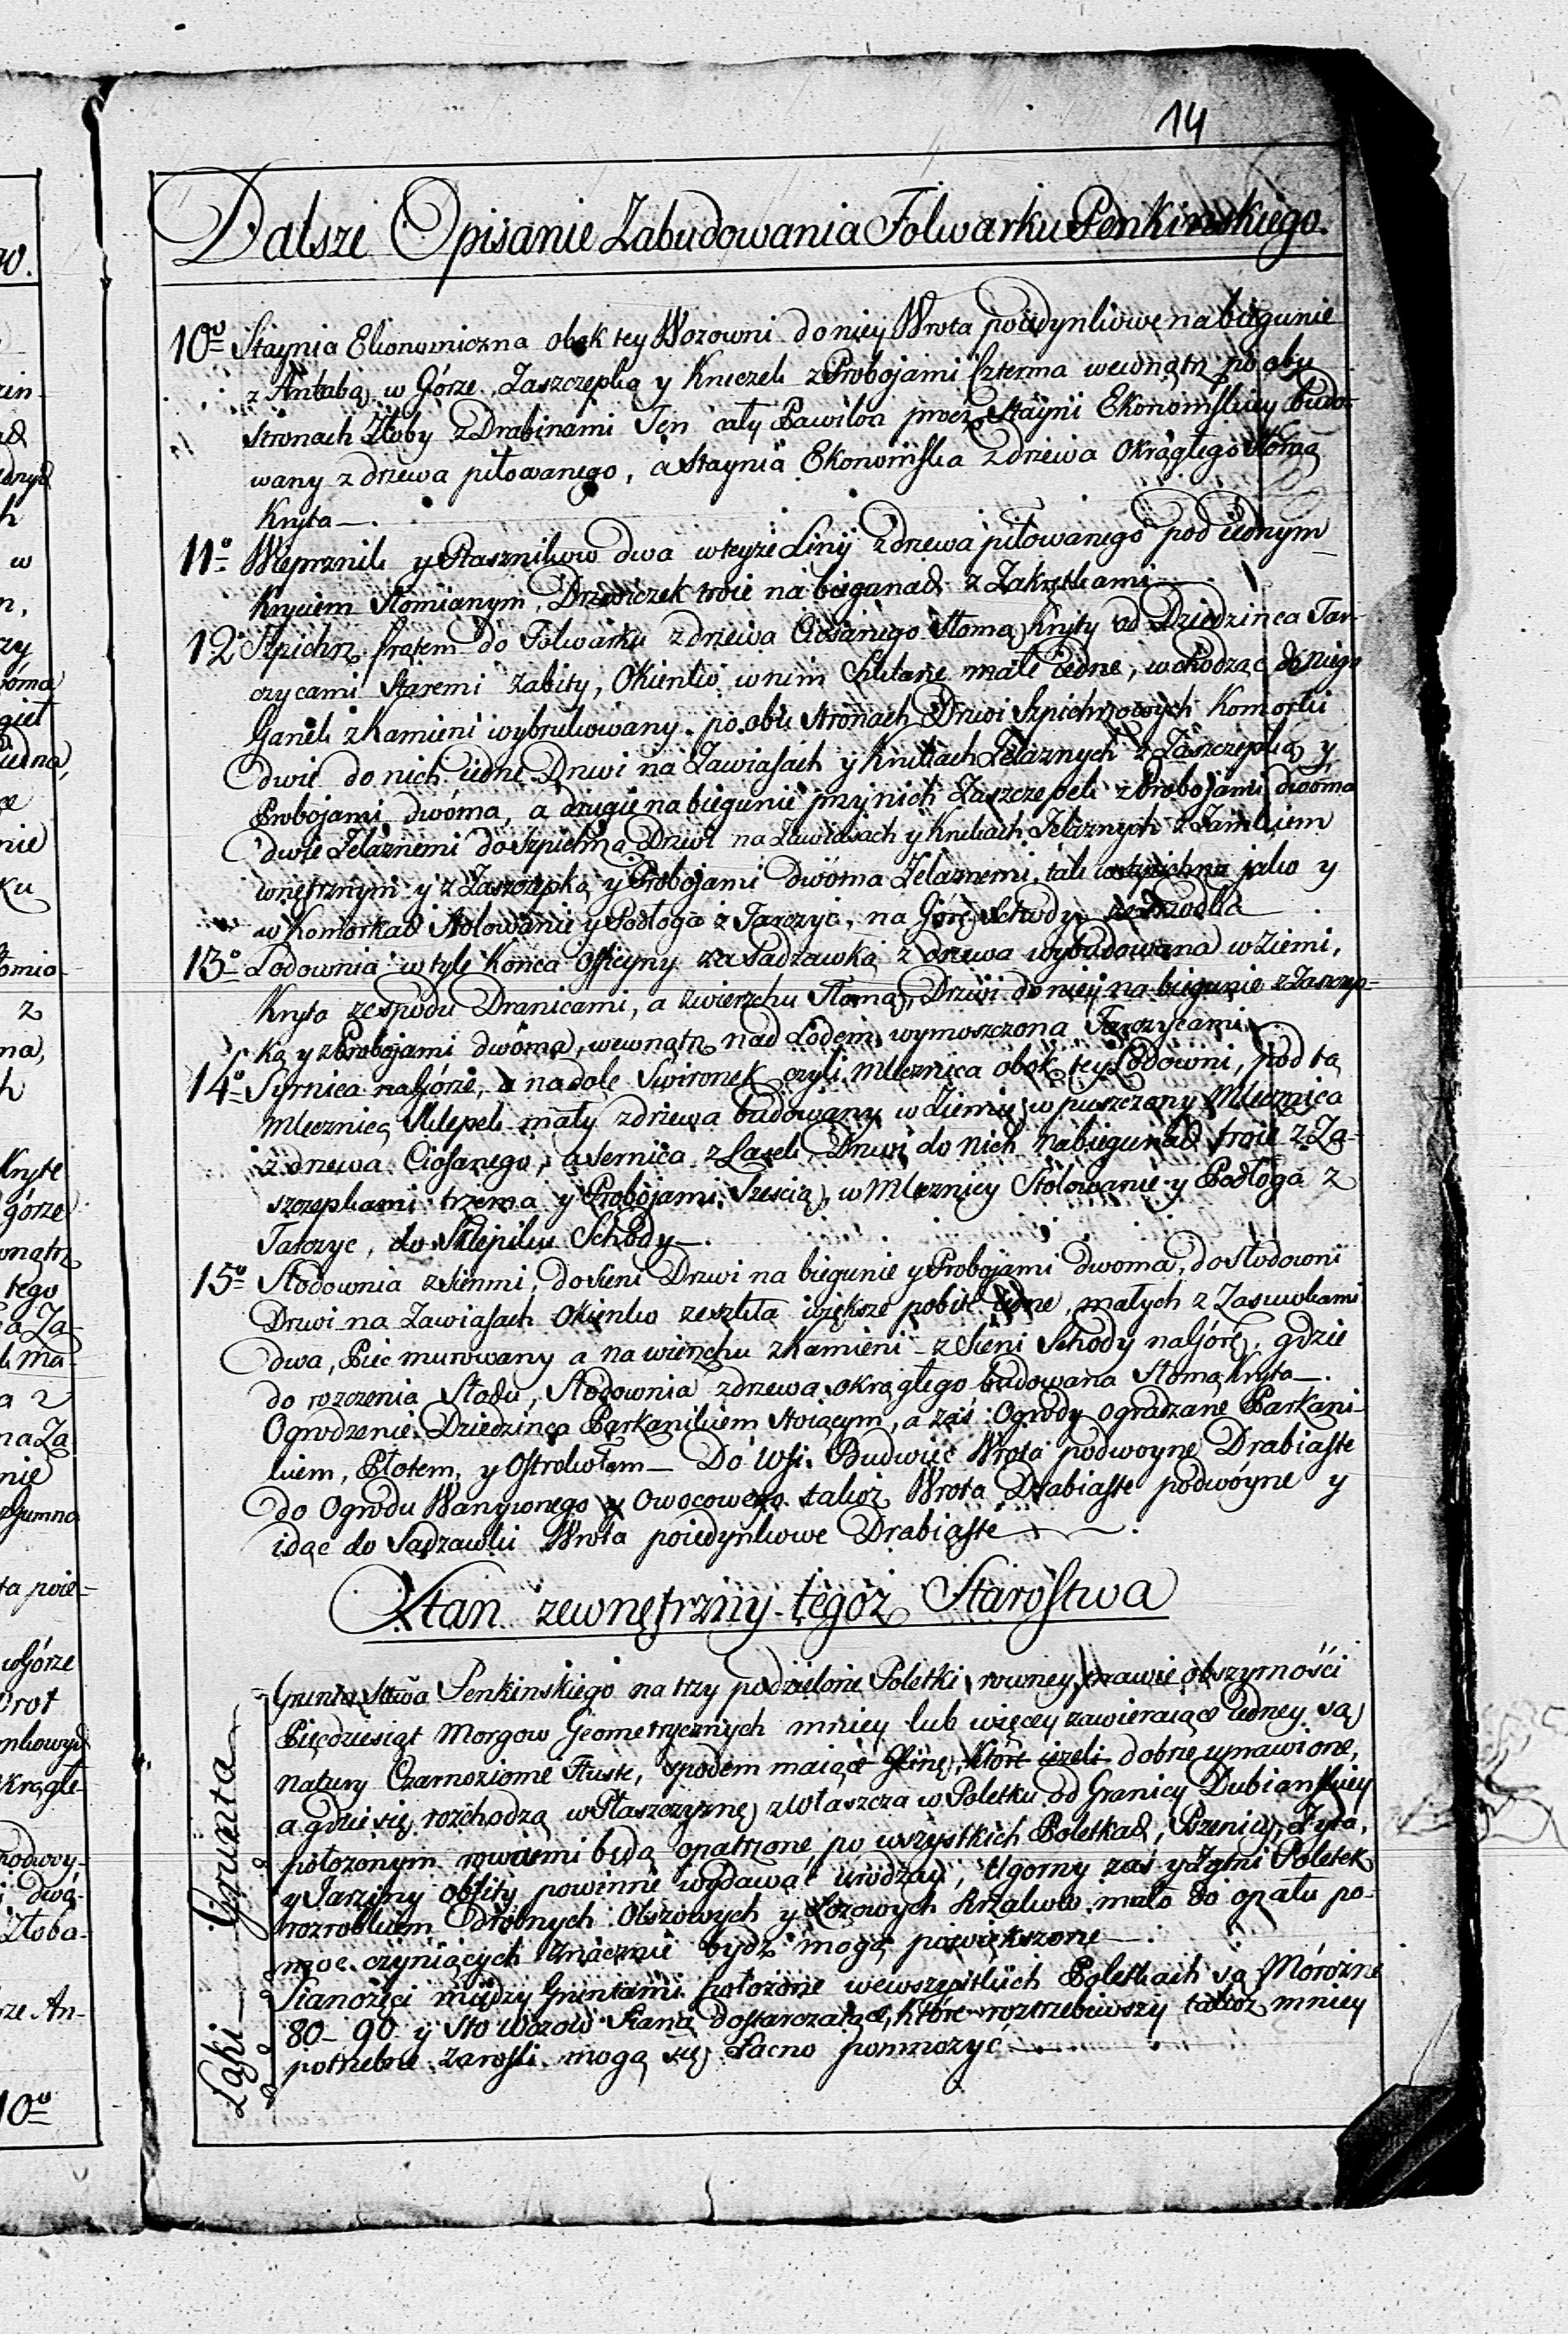 14
Dalsze Opisanie Zabudowania Folwarku Penkinskiego.
10º Staynia Ekonomiczna obok tey Wozowni do niey Wrota poiedynkowe na biegunie
z Antabą w Górze, Zaszczepką y Kruczek z Probojami Czterma wewnątrz po obu
stronach Żłoby z Drabinami Ten cały Pawilon procz Stayni Ekonomskiey budo-
wany z drzewa piłowanego, a Staynia Ekonomska z drzewa Okrągłego Słomą
Kryta —.
11º Wieprznik y Ptasznikow dwa w teyze Linij z drzewa piłowanego pod iednym
Kryciem Słomianym, Drzwiczek troie na biegunach z Zakrętkami —.
12º Szpichrz frątem do Folwarku z drzewa Ciosanego Słomą kryty od Dziedzinca Tar-
czycami Staremi zabity, Okienko w nim Szklane małe iedne, wchodząc do niego
Ganek z kamieni wybrukowany. po obu Stronach Drzwi Szpichrzowych Komorki
dwie do nich iedne Drzwi na Zawiasach y Krukach Żelaznych z Zaszczepką y
Probojami dwóma, a drugie na biegunie przy nich Zaszczepek z Probojami dwóma
dwie Żelaznemi do Szpichrza Drzwi na Zawiasach y Krukach Żelaznych z Zamkiem
wnętrznym y z Zaszczepką y Probojami dwóma Żelaznemi, tak w szpichrzu jako y
w Komorkach Stolowanie y Podłoga z Tarczyc, na Gorę Schody
13º Lodownia w tyle Końca Officyny za Sadzawką z drzewa wybudowana w Ziemi,
Kryta ze spodu Dranicami, a zwierzchu Słomą, Drzwi do niey na biegunie z Zaszczep-
ką y z Probojami dwóma, wewnątrz nad Lodem wymoszczona Tarczycami
14º Syrnica na Górze, a na dole Swironek czyli mlecznica obok tey Lodowni, pod tą
Mlecznicą Sklepek mały z drzewa budowany w Ziemię wpuszczany Mlecznica
z drzewa Ciosanego, a Sernica z Łatek Drzwi do nich na biegunach troie z Za-
szczepkami trzema y Probojami Szescią, w Mlecznicy Stolowanie y Podłoga z
Tarczyc, do Sklepiku Schody —.
15º Słodownia z Sienmi, do Sieni Drzwi na biegunie y Probojami dwoma, do Słodowni
Drzwi na Zawiasach Okienko ze szkła większe pobite iedne, małych z Zasuwkami
dwa, Piec murowany a na wierzchu z Kamieni — z Sieni Schody na Górę, gdzie
do rozczenia Słodu, Słodownia z drzewa okrągłego budowana Słomą Kryta —.
Ogrodzenie Dziedzinca Parkanikiem Stoiącym, a zaś Ogrody ogradzane Parkani-
kiem, Płotem, y Ostrokołem — Do Wsi Budwieć Wrota podwoyne Drabiaste
do Ogrodu Warzywnego y Owocowego takoż Wrota Drabiaste podwóyne y
idąc do Sadzawki Wrota poiedynkowe Drabiaste —.
Stan zewnętrzny tegoż Starostwa
Grunta
Grunta Stwa Penkinskiego na trzy podzielone Poletki rowney prawie obszyrności
Pięcdziesiąt Morgow Geometrycznych mniey lub więcey zawieraiące iedney są
natury Czarnoziome Tłuste, spodem maiące Glinę, które ieżeli dobrze uprawione,
a gdzie się rozchodzą w Płaszczyznę zwłaszcza w Poletku od Granicy Dubianskiey
położonym rowami będą opatrzone, po wszystkich Poletkach, Pszenicy, Żyta,
y Jarzyny obfity powinni wydawać urodzay, Ugorny zaś y Żytni Poletek
rozrobkiem drobnych Olszowych y Łozowych Krzakow mało do opału po-
moc czyniących znacznie bydz mogą powiększone —.
Łąki
Sianożęci między Gruntami położone we wszystkich Poletkach są Mórożne
80 – 90 y Sto wozow Siana dostarczaiące, które roztrzebiwszy takoż mniey
potrzebne zarosli mogą się Łacno pomnożyć —